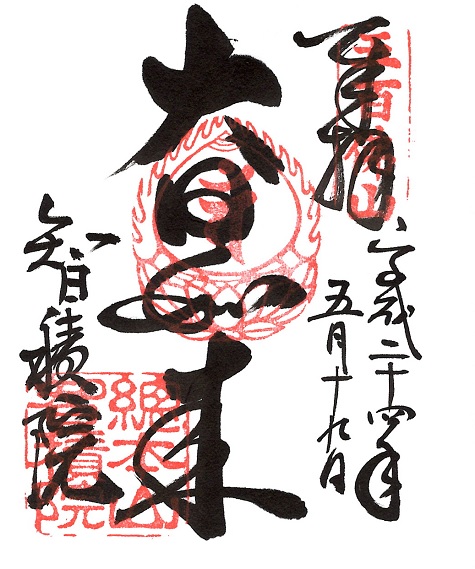 奉拝
平成二十四年
五月十九日
大日如来
智積院
総本山
智積院